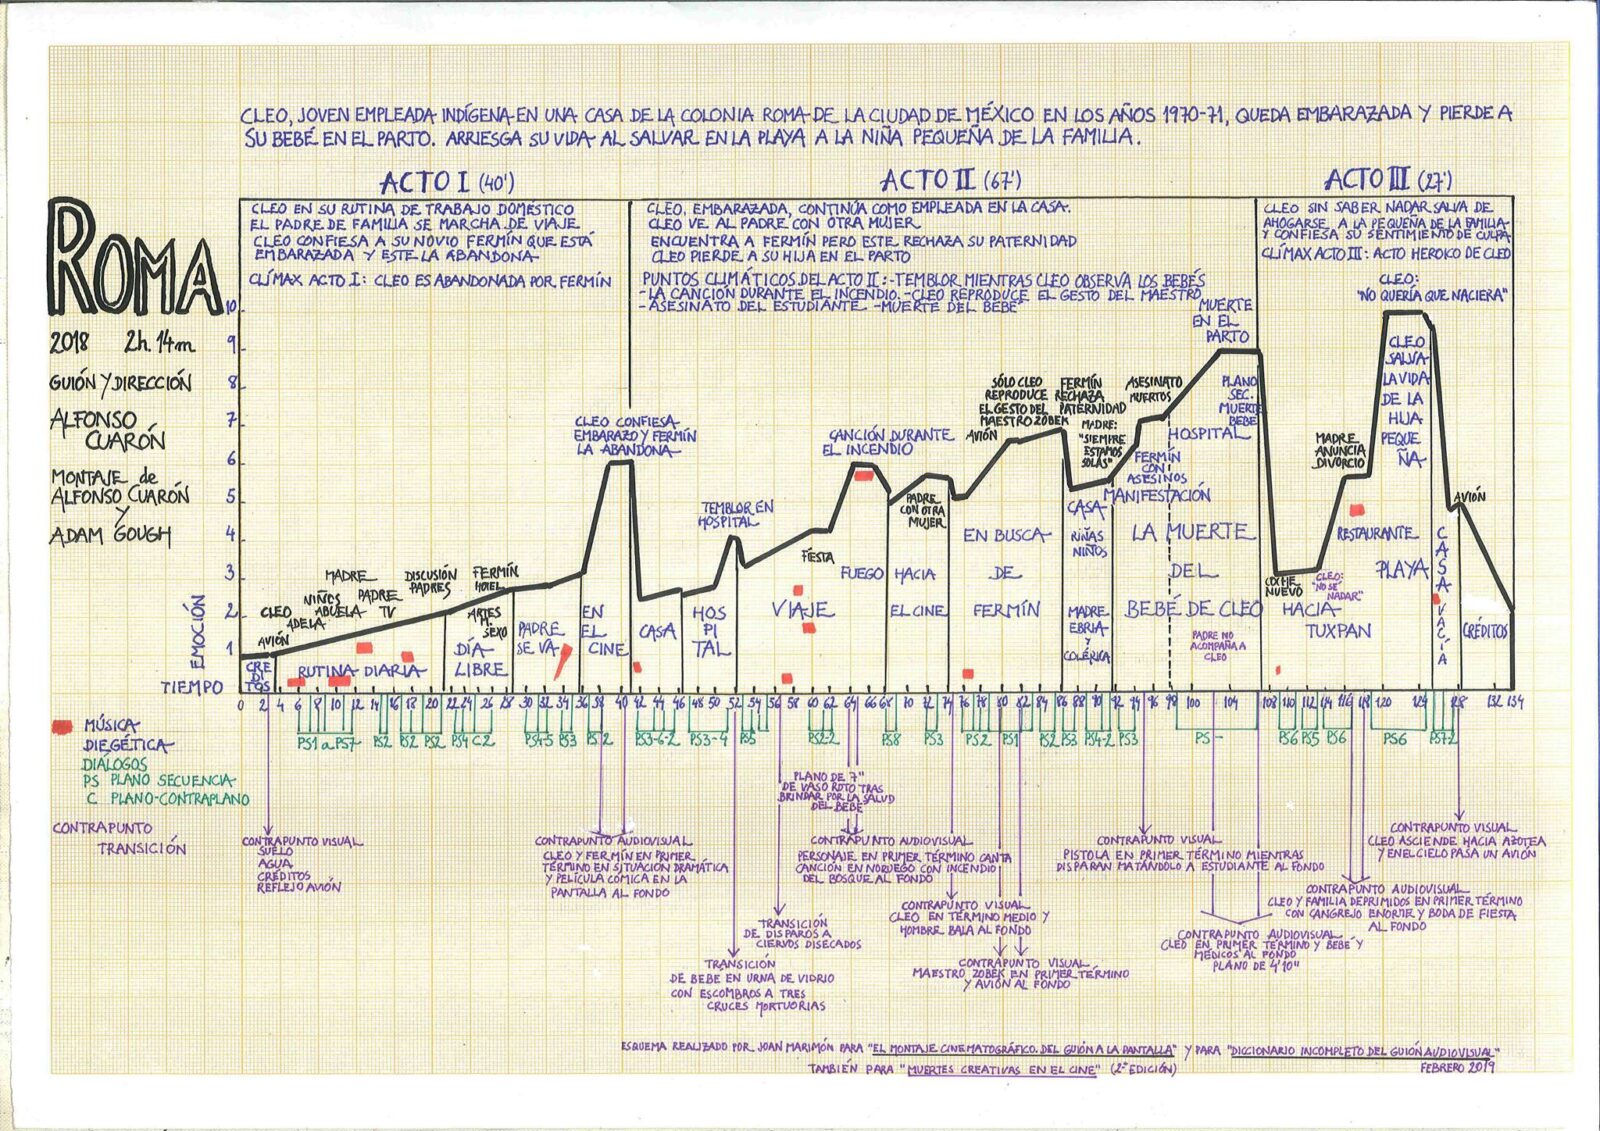 CLEO, JOVEN EMPLEADA INDÍGENA EN UNA CASA DE LA COLONIA ROMA DE LA CIUDAD DE MÉXICO EN LOS AÑOS 1970-71, QUEDA EMBARAZADA Y PIERDE A
SU BEBÉ EN EL PARTO. ARRIESGA SU VIDA AL SALVAR EN LA PLAYA A LA NIÑA PEQUEÑA DE LA FAMILIA.
ROMA
2018 2h. 14m
GUIÓN Y DIRECCIÓN
ALFONSO
CUARÓN
MONTAJE de
ALFONSO CUARÓN
Y
ADAM GOUGH
ACTO I (40')
CLEO EN SU RUTINA DE TRABAJO DOMÉSTICO
EL PADRE DE FAMILIA SE MARCHA DE VIAJE
CLEO CONFIESA A SU NOVIO FERMÍN QUE ESTÁ
EMBARAZADA Y ESTE LA ABANDONA
CLÍMAX ACTO I: CLEO ES ABANDONADA POR FERMÍN
ACTO II (67')
CLEO, EMBARAZADA, CONTINÚA COMO EMPLEADA EN LA CASA.
CLEO VE AL PADRE CON OTRA MUJER
ENCUENTRA A FERMÍN PERO ESTE RECHAZA SU PATERNIDAD
CLEO PIERDE A SU HIJA EN EL PARTO
PUNTOS CLIMÁTICOS DEL ACTO II: -TEMBLOR MIENTRAS CLEO OBSERVA LOS BEBÉS
-LA CANCIÓN DURANTE EL INCENDIO. -CLEO REPRODUCE EL GESTO DEL MAESTRO
-ASESINATO DEL ESTUDIANTE -MUERTE DEL BEBÉ
ACTO III (27')
CLEO SIN SABER NADAR SALVA DE
AHOGARSE A LA PEQUEÑA DE LA FAMILIA
Y CONFIESA SU SENTIMIENTO DE CULPA
CLÍMAX ACTO III: ACTO HEROICO DE CLEO
CLEO:
"NO QUERÍA QUE NACIERA"
EMOCIÓN
10
9
8
7
6
5
4
3
2
1
TIEMPO
AVIÓN
CLEO
ADELA
NIÑOS
ABUELA
MADRE
PADRE
TV
DISCUSIÓN
PADRES
FERMÍN
HOTEL
ARTES
M.
SEXO
CLEO CONFIESA
EMBARAZO Y FERMÍN
LA ABANDONA
TEMBLOR EN
HOSPITAL
FIESTA
CANCIÓN DURANTE
EL INCENDIO
PADRE
CON OTRA
MUJER
AVIÓN
SÓLO CLEO
REPRODUCE
EL GESTO DEL
MAESTRO ZOBEK
FERMÍN
RECHAZA
PATERNIDAD
MADRE:
"SIEMPRE
ESTAMOS
SOLAS"
ASESINATO
MUERTOS
FERMÍN
CON
ASESINOS
MUERTE
EN EL
PARTO
PLANO
SEC.
MUERTE
BEBÉ
HOSPITAL
MANIFESTACIÓN
PADRE NO
ACOMPAÑA A
CLEO
COCHE
NUEVO
CLEO:
"NO SÉ
NADAR"
MADRE
ANUNCIA
DIVORCIO
CLEO
SALVA
LA VIDA
DE LA
HIJA
PEQUE
ÑA
AVIÓN
CRE
DI
TOS
RUTINA DIARIA
DÍA
LIBRE
PADRE
SE VA
EN
EL
CINE
CASA
HOS
PI
TAL
VIAJE
FUEGO
HACIA
EL CINE
EN BUSCA
DE
FERMÍN
CASA
NIÑAS
NIÑOS
MADRE
EBRIA
Y
COLÉRICA
LA MUERTE
DEL
BEBÉ DE CLEO
HACIA
TUXPAN
RESTAURANTE
PLAYA
CASA VACÍA
CRÉDITOS
0 2 4 6 8 10 12 14 16 18 20 22 24 26 28 30 32 34 36 38 40 42 44 46 48 50 52 54 56 58 60 62 64 66 68 70 72 74 76 78 80 82 84 86 88 90 92 94 96 98 100 104 108 110 112 114 116 118 120 124 128 132 134
PS1 a PS7 PS2 PS2 PS2 PS4 C2 PS4-5 PS3 PS12 PS3-6-2 PS3-4 PS5 PS2-2 PS8 PS3 PS2 PS1 PS2 PS3 PS4-2 PS3 PS- PS6 PS5 PS6 PS6 PS72
MÚSICA
DIEGÉTICA
DIÁLOGOS
PS PLANO SECUENCIA
C PLANO-CONTRAPLANO
CONTRAPUNTO
TRANSICIÓN
CONTRAPUNTO VISUAL
SUELO
AGUA
CRÉDITOS
REFLEJO AVIÓN
CONTRAPUNTO AUDIOVISUAL
CLEO Y FERMÍN EN PRIMER
TÉRMINO EN SITUACIÓN DRAMÁTICA
Y PELÍCULA CÓMICA EN LA
PANTALLA AL FONDO
TRANSICIÓN
DE BEBÉ EN URNA DE VIDRIO
CON ESCOMBROS A TRES
CRUCES MORTUORIAS
TRANSICIÓN
DE DISPAROS A
CIERVOS DISECADOS
PLANO DE 7"
DE VASO ROTO TRAS
BRINDAR POR LA SALUD
DEL BEBÉ
CONTRAPUNTO AUDIOVISUAL
PERSONAJE EN PRIMER TÉRMINO CANTA
CANCIÓN EN NORUEGO CON INCENDIO
DEL BOSQUE AL FONDO
CONTRAPUNTO VISUAL
CLEO EN TÉRMINO MEDIO Y
HOMBRE BALA AL FONDO
CONTRAPUNTO VISUAL
MAESTRO ZOBEK EN PRIMER TÉRMINO
Y AVIÓN AL FONDO
CONTRAPUNTO VISUAL
PISTOLA EN PRIMER TÉRMINO MIENTRAS
DISPARAN MATÁNDOLO A ESTUDIANTE AL FONDO
CONTRAPUNTO AUDIOVISUAL
CLEO EN PRIMER TÉRMINO Y BEBÉ Y
MÉDICOS AL FONDO
PLANO DE 4'10"
CONTRAPUNTO AUDIOVISUAL
CLEO Y FAMILIA DEPRIMIDOS EN PRIMER TÉRMINO
CON CANGREJO ENORME Y BODA DE FIESTA
AL FONDO
CONTRAPUNTO VISUAL
CLEO ASCIENDE HACIA AZOTEA
Y EN EL CIELO PASA UN AVIÓN
ESQUEMA REALIZADO POR JOAN MARIMÓN PARA "EL MONTAJE CINEMATOGRÁFICO. DEL GUIÓN A LA PANTALLA" Y PARA "DICCIONARIO INCOMPLETO DEL GUIÓN AUDIOVISUAL"
TAMBIÉN PARA "MUERTES CREATIVAS EN EL CINE" (2ª EDICIÓN)
FEBRERO 2019